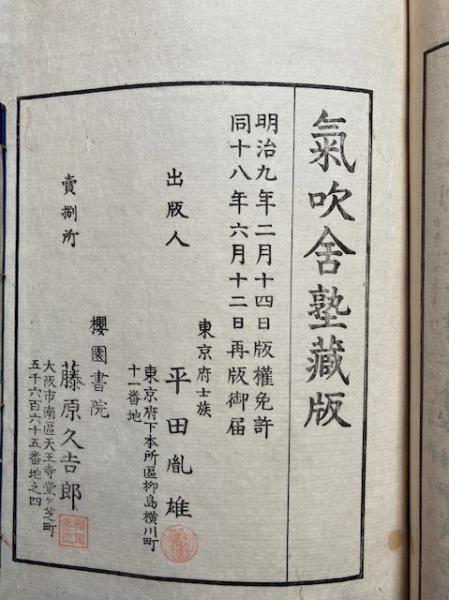 氣吹舍塾藏版
明治九年二月十四日版權免許
同十八年六月十二日再版御届
東京府士族
出版人
平田胤雄
東京府下本所區柳島橫川町
十一番地
櫻園書院
賣捌所
藤原久吉郎
大阪市南區天王寺堂ヶ芝町
五千六百六十五番地之四